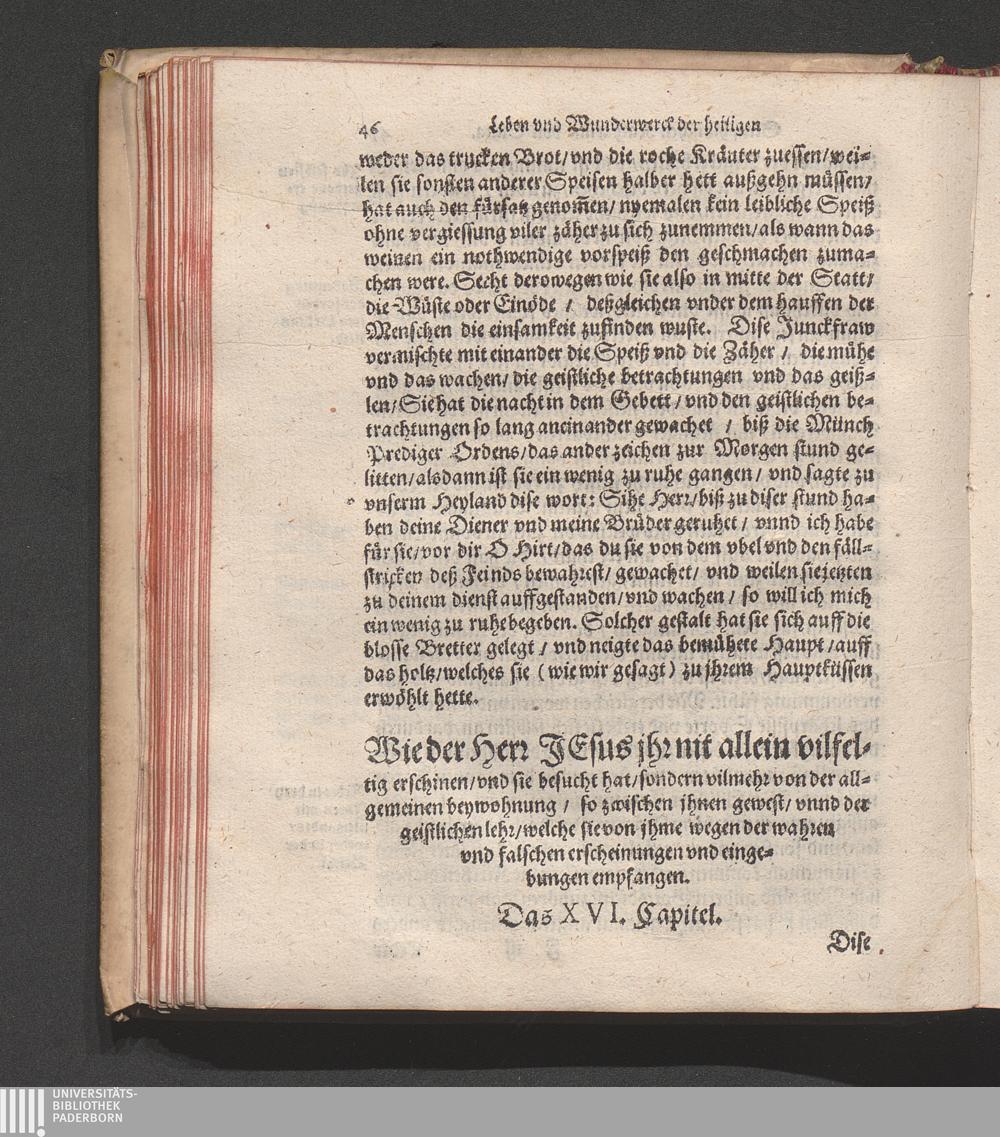 46 Leben vnd Wunderwerck der heiligen
weder das trucken Brot/vnd die roche Kräuter zuessen/wei-
len sie sonsten anderer Speisen halber hett außgehn müssen/
hat auch den fürsatz genom̃en/ nyemalen kein leibliche Speiß
ohne vergiessung viler zäher zu sich zunemmen/als wann das
weinen ein nothwendige vorspeiß den geschmachen zuma-
chen were. Secht derowegen wie sie also in mitte der Statt/
die Wüste oder Einöde / deßgleichen vnder dem hauffen der
Menschen die einsamkeit zufinden wuste. Dise Junckfraw
vermischte mit einander die Speiß vnd die Zäher / die mühe
vnd das wachen/ die geistliche betrachtungen vnd das geiß-
len/ Sie hat die nacht in dem Gebett / vnd den geistlichen be-
trachtungen so lang aneinander gewachet / biß die Münch
Prediger Ordens/das ander zeichen zur Morgen stund ge-
litten/alsdann ist sie ein wenig zu ruhe gangen/ vnd sagte zu
vnserm Heyland dise wort: Sihe Herr/biß zu diser stund ha-
ben deine Diener vnd meine Brüder geruhet / vnnd ich habe
für sie/vor dir O Hirt/das du sie von dem vbel vnd den fäll-
stricken deß Feinds bewahrest/ gewachet/ vnd weilen sie jetzten
zu deinem dienst auffgestanden/vnd wachen / so will ich mich
ein wenig zu ruhe begeben. Solcher gestalt hat sie sich auff die
blosse Bretter gelegt / vnd neigte das bemühete Haupt /auff
das holtz/welches sie (wie wir gesagt) zu jhrem Hauptküssen
erwöhlt hette.
Wie der Herr JEsus jhr nit allein vilfel-
tig erschinen/vnd sie besucht hat/sondern vilmehr von der all-
gemeinen beywohnung / so zwischen jhnen gewest/ vnnd der
geistlichen lehr/welche sie von jhme wegen der wahren
vnd falschen erscheinungen vnd einge-
bungen empfangen.
Das XVI. Capitel.
Dise
UNIVERSITÄTS-
BIBLIOTHEK
PADERBORN